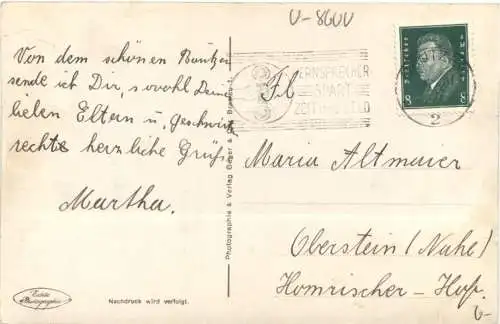 U-8600
Von dem schönen Bautzen
sende ich Dir, sowohl Deinen
lieben Eltern u. Geschwist.
recht herzliche Grüße
Martha.
FERNSPRECHER
SPART
ZEIT UND GELD
DEUTSCHES REICH
8 8
2
Frl.
Maria Altmaier
Oberstein (Nahe)
Homrischer-Hof.
Photographie & Verlag
Echte
Photographie
Nachdruck wird verfolgt.